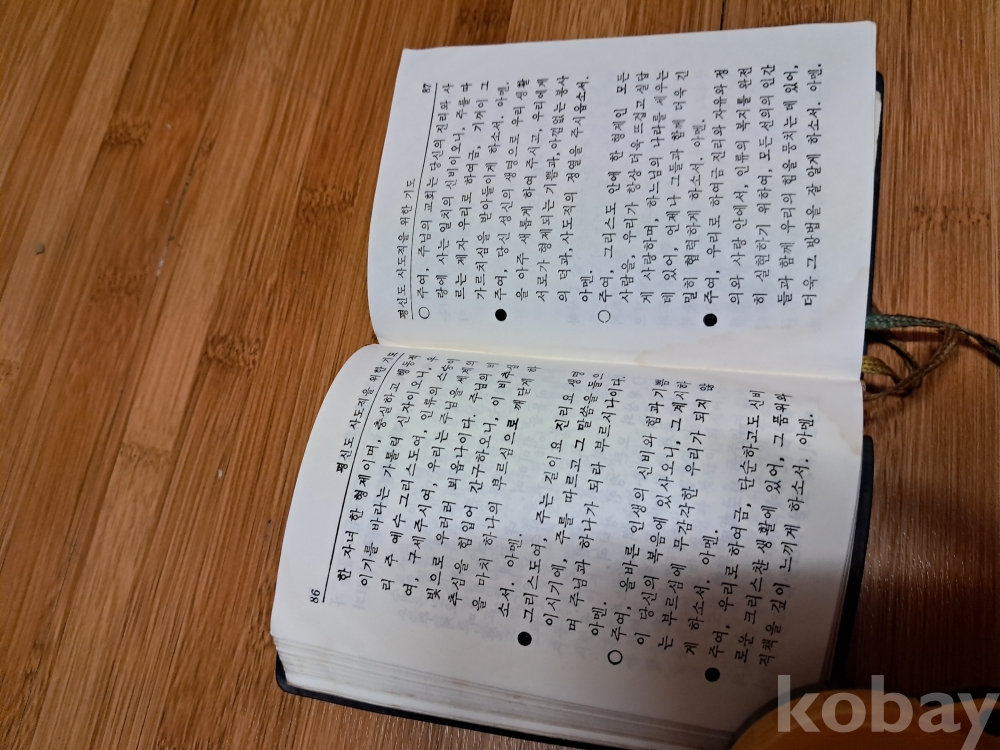 86
평신도 사도직을 위한 기도
한 자녀 한 형제이며, 충실하고 행동적
이기를 바라는 가톨릭 신자이오니, 우
리 주 예수 그리스도여, 인류의 스승이
여, 구세주시여, 우리는 주님을 세계의
빛으로 우러러 뵈옵나이다. 주님의 비
추심을 힘입어 간구하오니, 이 비추심
을 마치 하나의 부르심으로 깨닫게 하
소서. 아멘.
● 그리스도여, 주는 길이요 진리요 생명
이시기에, 주를 따르고 그 말씀을 들으
며 주님과 하나가 되라 부르시나이다.
아멘.
○ 주여, 올바른 인생의 신비와 힘과 기쁨
이 당신의 복음에 있사오니, 그 제시하
는 부르심에 무감각한 우리가 되지 않
게 하소서. 아멘.
● 주여, 우리로 하여금, 단순하고도 신비
로운 크리스챤 생활에 있어, 그 품위와
직책을 깊이 느끼게 하소서. 아멘.
평신도 사도직을 위한 기도
87
○ 주여, 주님의 교회는 당신의 진리와 사
랑에 사는 일치의 신비이오니, 주를 따
르는 제자 우리로 하여금, 기꺼이 그
가르치심을 받아들이게 하소서. 아멘.
● 주여, 당신 성신의 생명으로 우리 생활
을 아주 새롭게 하여 주시고, 우리에게
서로가 형제되는 기쁨과, 아낌없는 봉사
의 덕과, 사도직의 정열을 주시옵소서.
아멘.
○ 주여, 그리스도 안에 한 형제인 모든
사람을, 우리가 항상 더욱 뜨겁고 실답
게 사랑하며, 하느님의 나라를 세우는
데 있어, 언제나 그들과 함께 더욱 긴
밀히 협력하게 하소서. 아멘.
● 주여, 우리로 하여금 진리와 자유와 정
의와 사랑 안에서, 인류의 복지를 완전
히 실현하기 위하여, 모든 선의의 인간
들과 함께 우리의 힘을 뭉치는 데 있어,
더욱 그 방법을 잘 알게 하소서. 아멘.
kobay